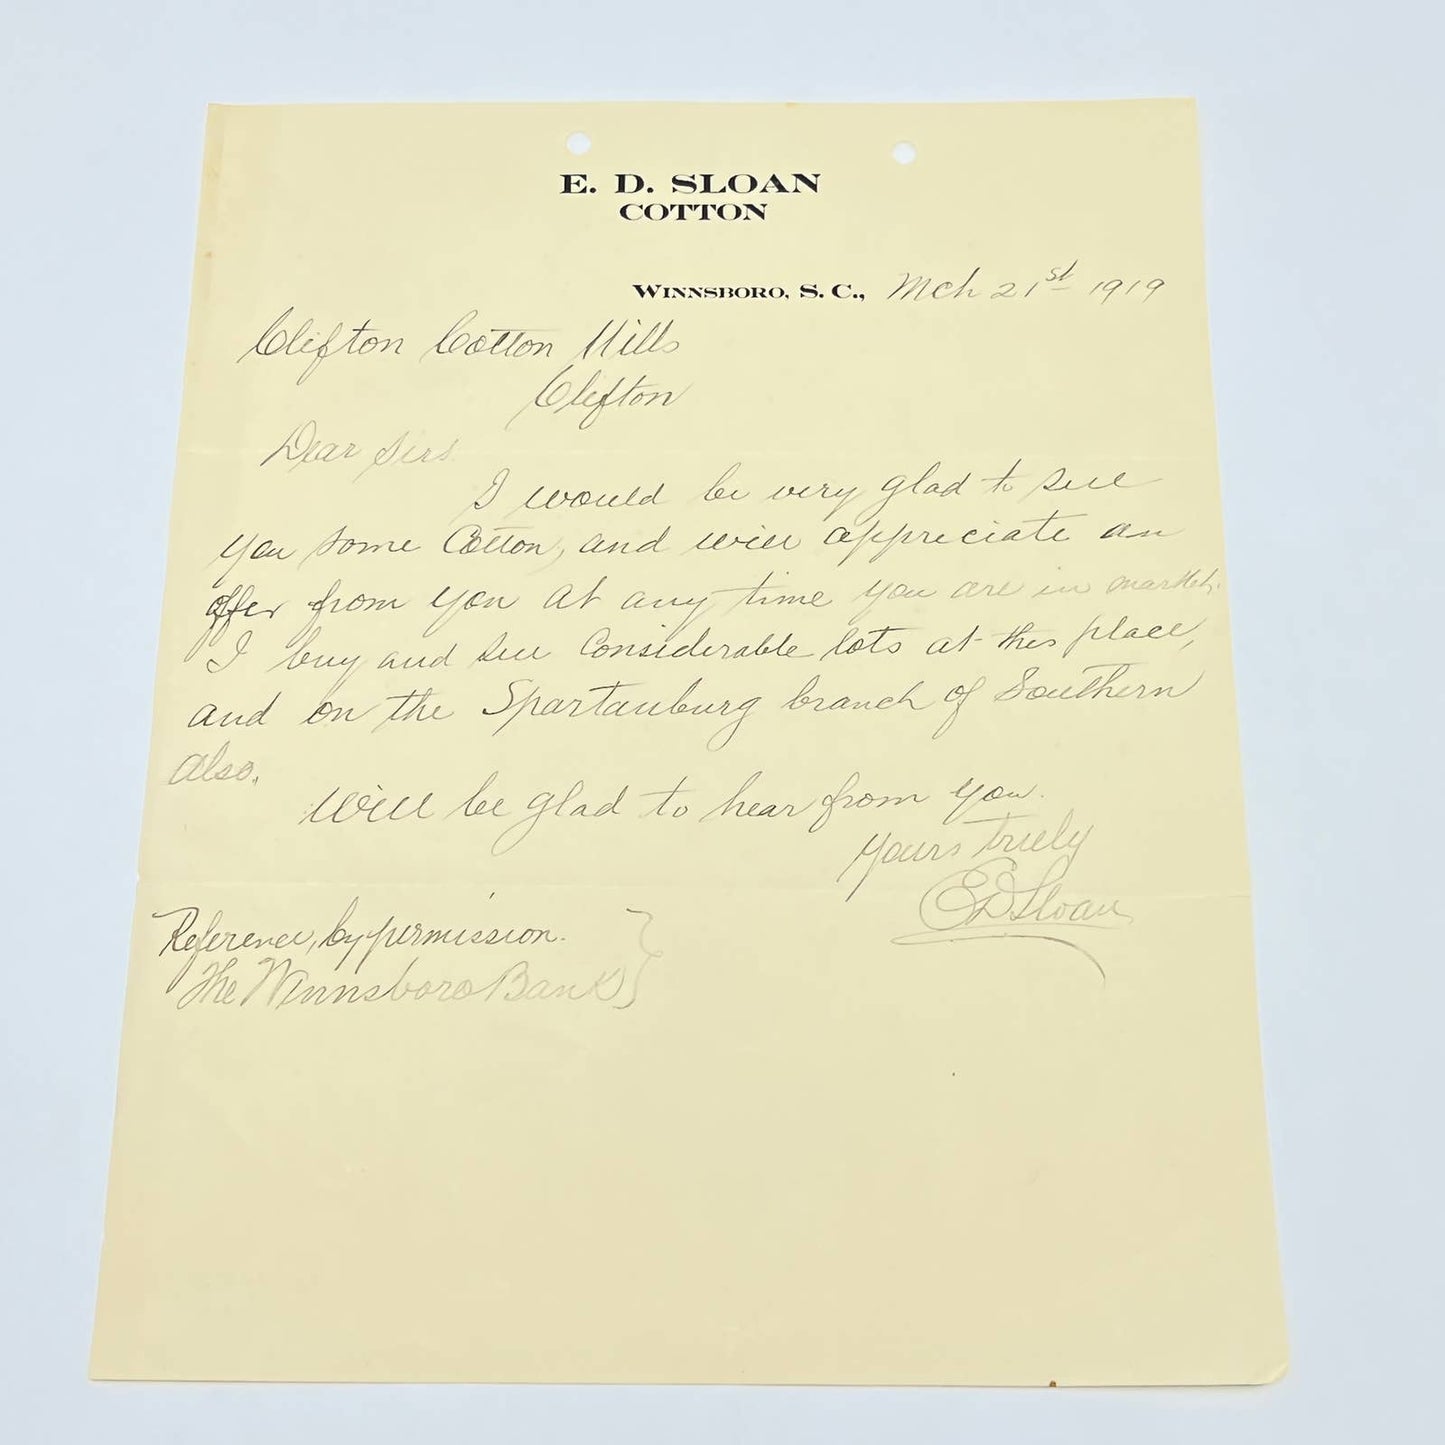 E. D. SLOAN
COTTON
WINNSBORO, S. C., Mch 21st 1919
Clifton Cotton Mills
Clifton
Dear Sirs
I would be very glad to sell
you some Cotton, and will appreciate an
offer from you at any time you are in market.
I buy and sell Considerable lots at this place,
and on the Spartanburg branch of Southern
also.
Will be glad to hear from you.
Yours truly
E D Sloan
Reference, by permission.
The Winnsboro Bank